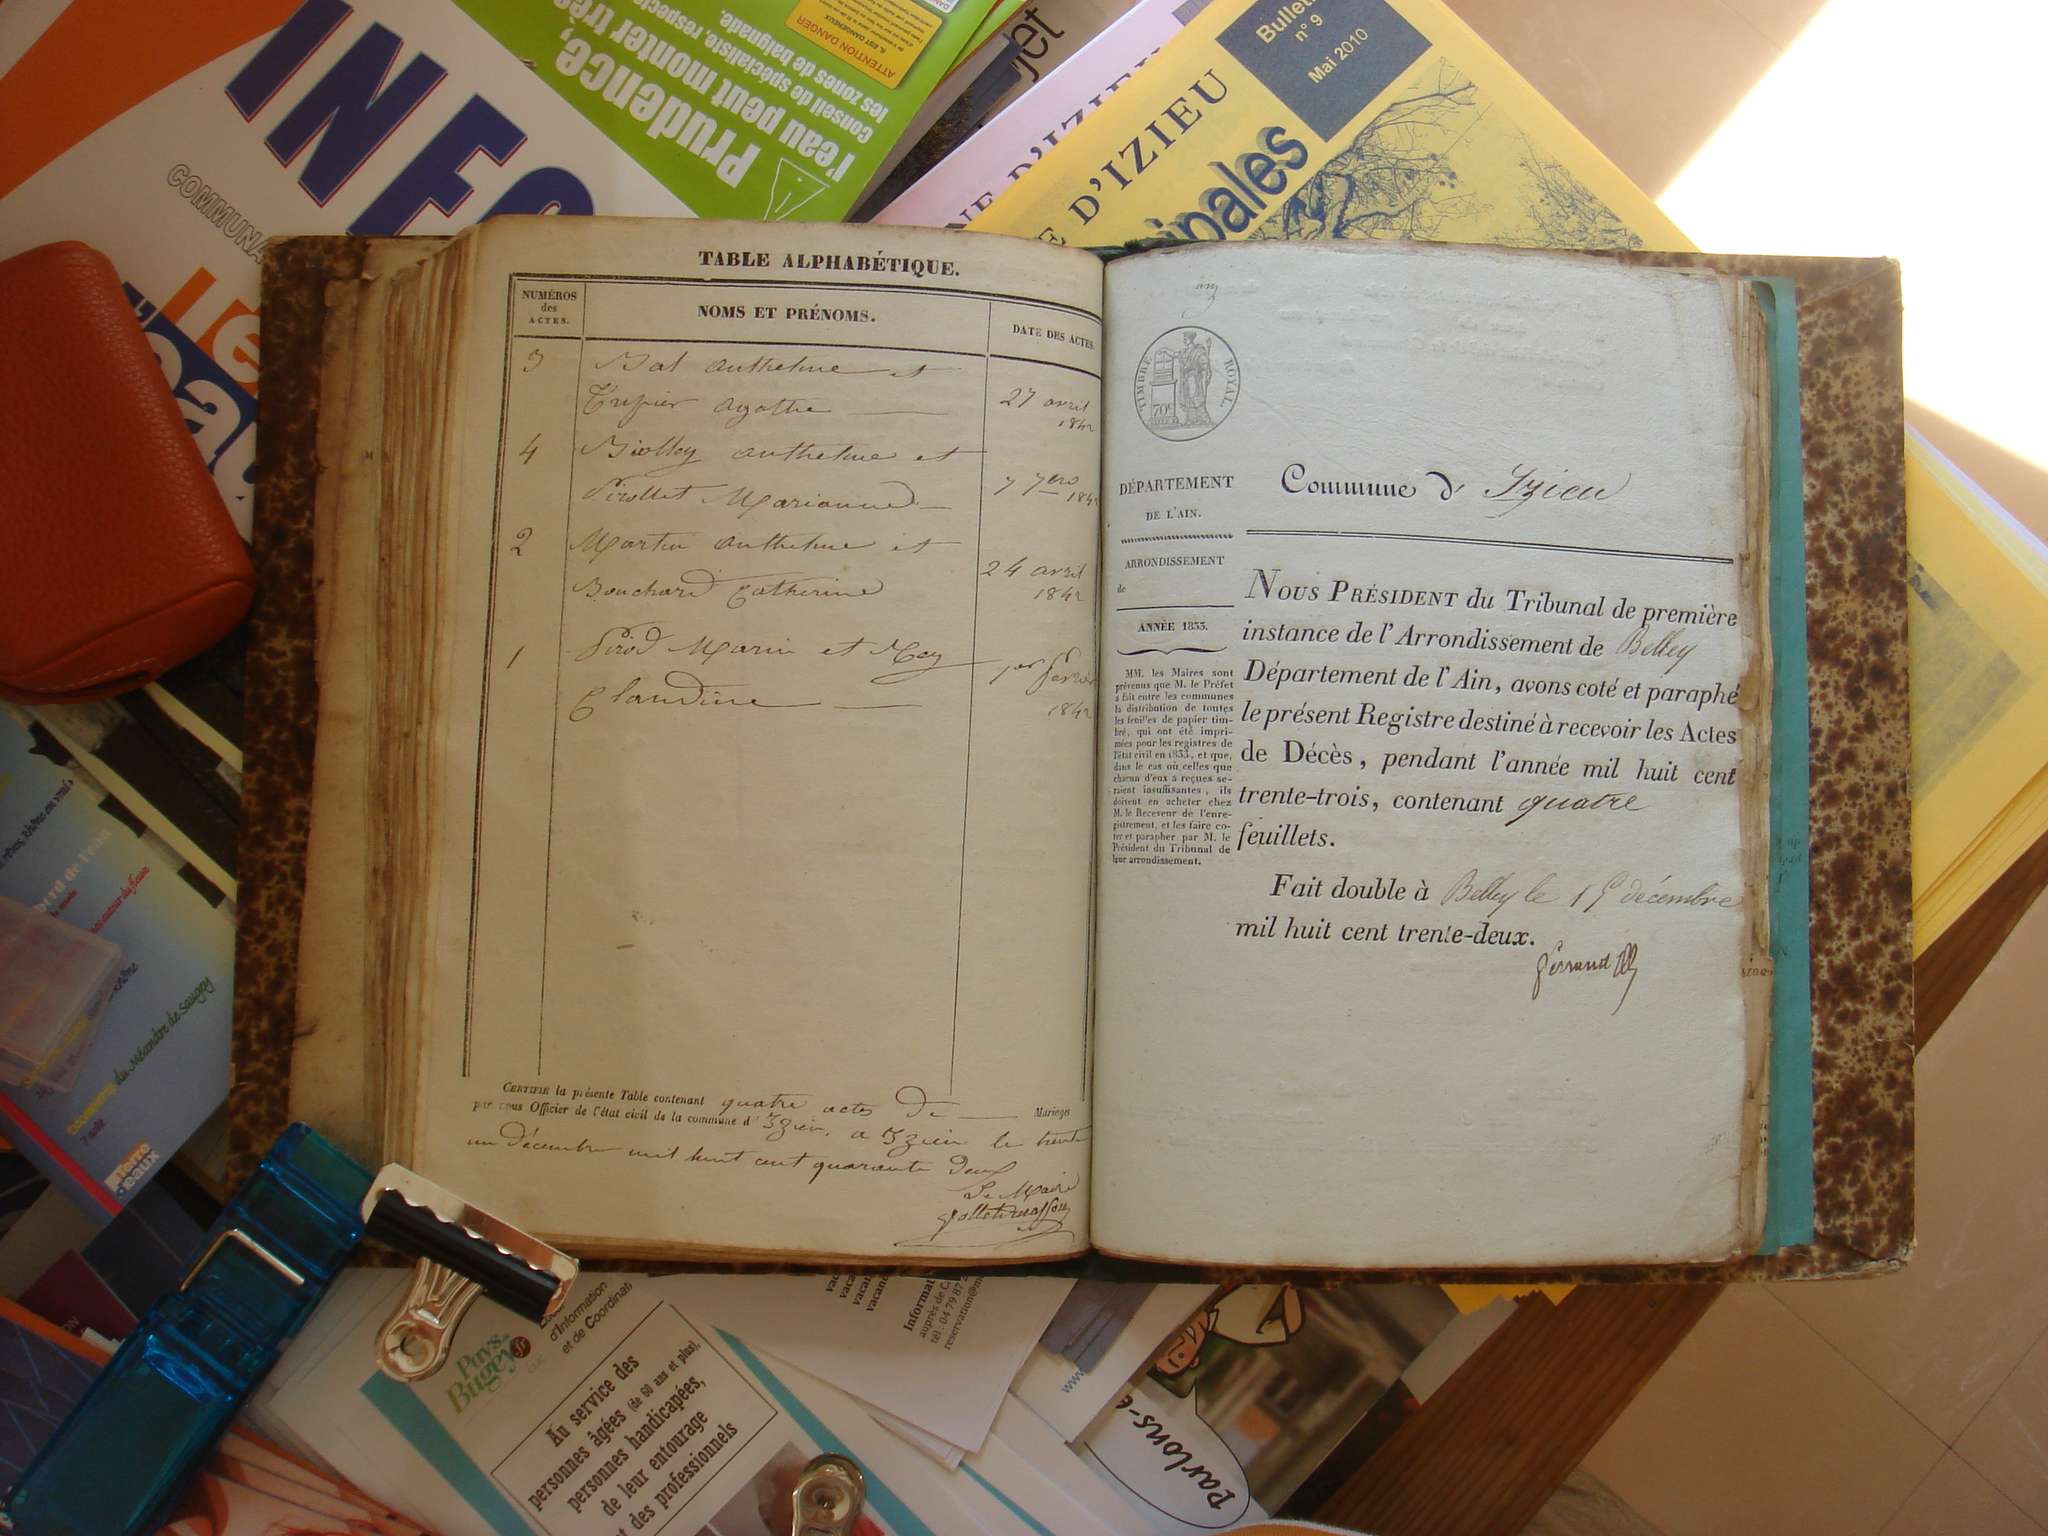 INFO
COMMUNA
Prudence,
l'eau peut monter très
conseil de spécialiste, respecte
les zones de baignade.
ATTENTION DANGER
Bullet
n° 9
Mai 2010
NE D'IZIEU
E D'IZIEU
ipales
TABLE ALPHABÉTIQUE.
NUMÉROS
des
ACTES.
NOMS ET PRÉNOMS.
DATE DES ACTES.
3 Bal anthelme et
Trepier agathe 27 avril
1842
4 Biolley anthelme et
Pirollet Marianne 7 7bre 1842
2 Martin anthelme et
Bouchard Catherine 24 avril
1842
1 Pirod Marin et Rey 1er février
Claudine 1842
CERTIFIÉ la présente Table contenant quatre actes de Mariages
par nous Officier de l'état civil de la commune d'Izieu, a Izieu le trente
un Décembre mil huit cent quarante Deux
Le Maire
TIMBRE ROYAL.
70c
DÉPARTEMENT
DE L'AIN.
ARRONDISSEMENT
de
ANNÉE 1833.
MM. les Maires sont
prévenus que M. le Préfet
a fait entre les communes
la distribution de toutes
les feuilles de papier tim-
bré, qui ont été impri-
mées pour les registres de
l'état civil en 1833, et que,
dans le cas où celles que
chacun d'eux a reçues se-
raient insuffisantes, ils
doivent en acheter chez
M. le Receveur de l'enre-
gistrement, et les faire co-
ter et parapher par M. le
Président du Tribunal de
leur arrondissement.
Commune d'Izieu
NOUS PRÉSIDENT du Tribunal de première
instance de l'Arrondissement de Belley
Département de l'Ain, avons coté et paraphé
le présent Registre destiné à recevoir les Actes
de Décès, pendant l'année mil huit cent
trente-trois, contenant quatre
feuillets.
Fait double à Belley le 15 décembre
mil huit cent trente-deux.
bord de l'eau
du Méandre de Saugey
7 août
Terre
d'eaux
Pays
Bugey
d'Information
et de Coordinati
Au service des
personnes âgées (de 60 ans et plus),
personnes handicapées,
de leur entourage
et des professionnels
vaca
vacanc
Informat
auprès de C
tél : 04 79 87 2
reservation@m
www.
Parlons-e